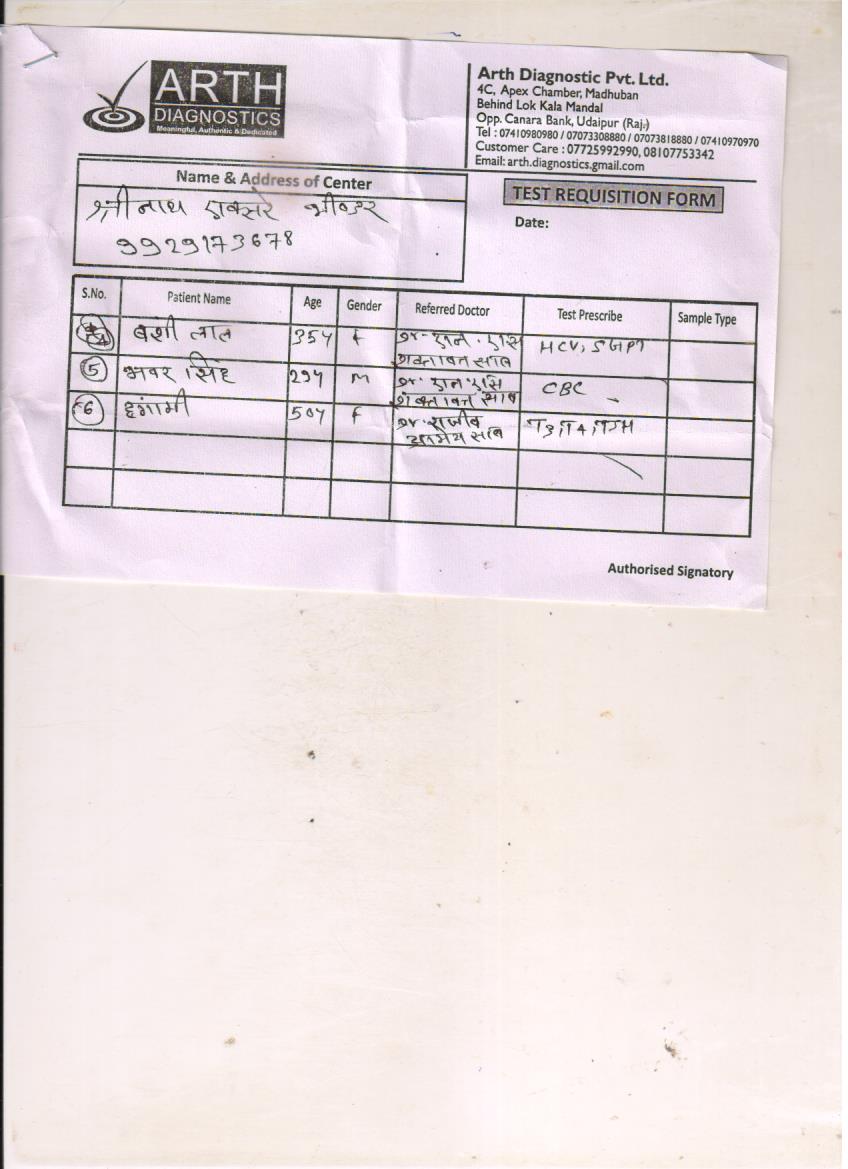 ARTH
DIAGNOSTICS
Meaningful, Authentic & Dedicated
Arth Diagnostic Pvt. Ltd.
4C, Apex Chamber, Madhuban
Behind Lok Kala Mandal
Opp. Canara Bank, Udaipur (Raj.)
Tel : 07410980980 / 07073308880 / 07073818880 / 07410970970
Customer Care : 07725992990, 08107753342
Email: arth.diagnostics.gmail.com
Name & Address of Center
श्री नाथ एक्सरे भीण्डर
9929173678
TEST REQUISITION FORM
Date:
S.No. Patient Name Age Gender Referred Doctor Test Prescribe Sample Type
4 बंशी लाल 35Y F HCV, SGPT
शक्तावत साब
5 भवर सिंह 29Y M CBC
शक्तावत साब
6 हगामी 50Y F डा. राजीव T3, T4, TSH
साब
Authorised Signatory